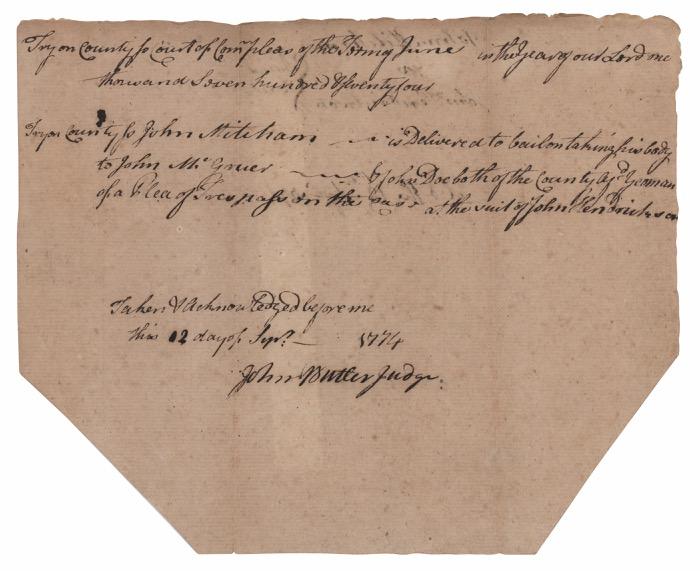 Tryon County ss Court of Com Pleas of the Term of June in the Year of our Lord one
thousand Seven hundred & Seventy four
Tryon County ss John Mitcham is Delivered to bail on taking his body
to John McGruer & John Doe both of the County afsd Yeoman
of a Plea of Trespass on the Case at the suit of John Hendrickson
Taken & Acknowledged before me
this 12 day of Sepr. 1774
John Butler Judge.